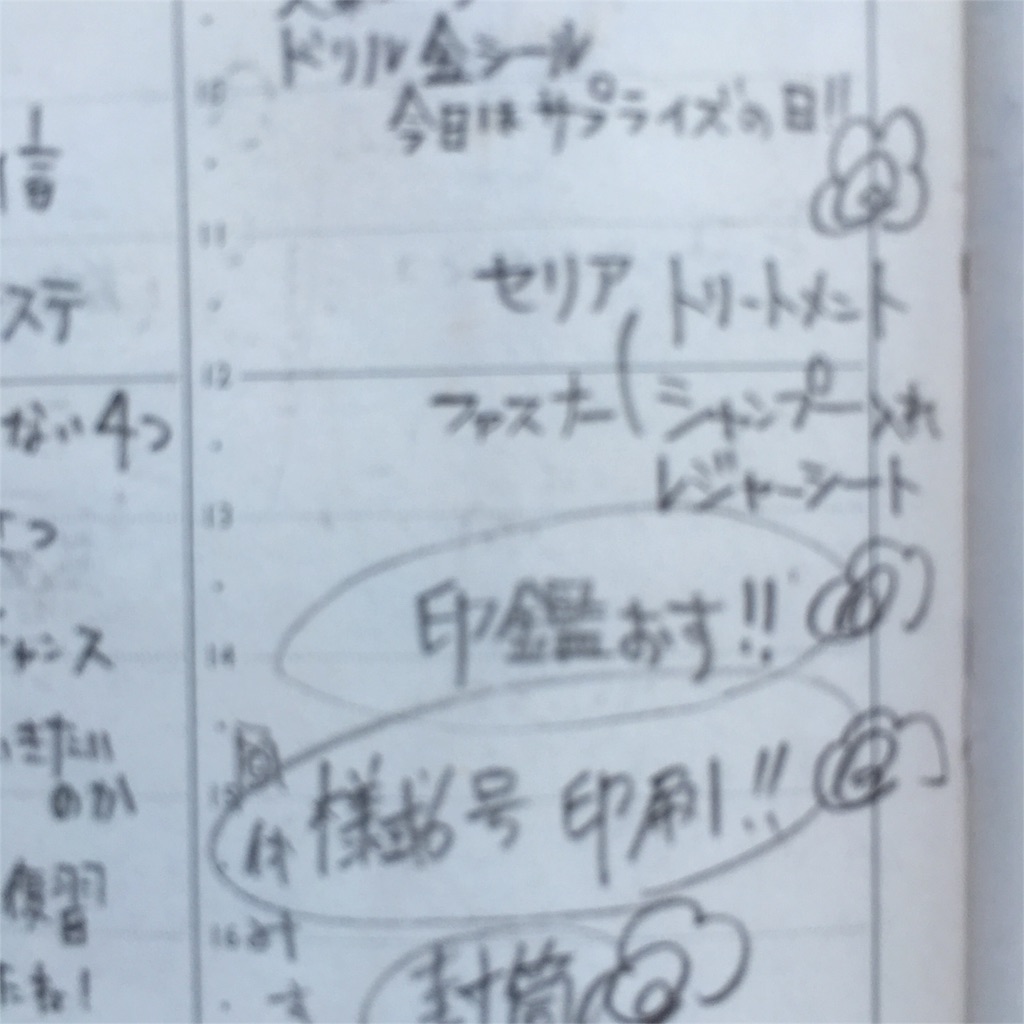 ドリル金シール
10
今日はサプライズの日!!
1
11
セリア トリートメント
ステ
12
ファスナー シャンプー入れ
ない4つ
レジャーシート
13
つ
印鑑おす!!
14
チャンス
きたい
のか
15
様 号 印刷!!
復習
16
封筒
たね!